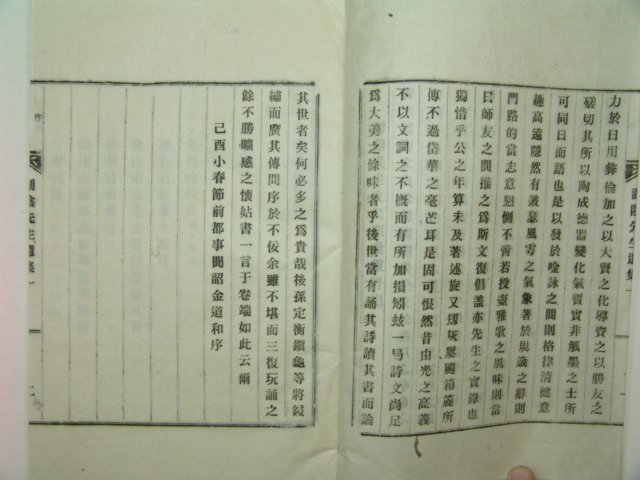 力於日用彝倫加之以大賢之化導資之以勝友之
磋切其所以陶成德器變化氣質實非觚墨之士所
可同日而語也是以發於唫詠之間則格律淸健意
趣高遠隱然有皷瑟風雩之氣象著於規箴之辭則
門路的當志意懇惻不啻若投壺雅歌之風味則當
日師友之間推之爲斯文復倡蓋亦先生之實錄也
獨惜乎公之年算未及著述旋又刧灰屢颺箱篋所
傳不過岱華之毫芒耳是固可恨然昔由光之高義
不以文詞之不槪而有所加損矧玆一臠詩文尚足
爲大羹之餘味者乎後世當有誦其詩讀其書而論
其世者矣何必多之爲貴哉後孫定衡鎭龜等將鋟
繡而廣其傳問序於不佞余雖不堪而三復玩誦之
餘不勝曠感之懷姑書一言于卷端如此云爾
己酉小春節前都事聞韶金道和序
序
先生遺集一
二
先生遺集一